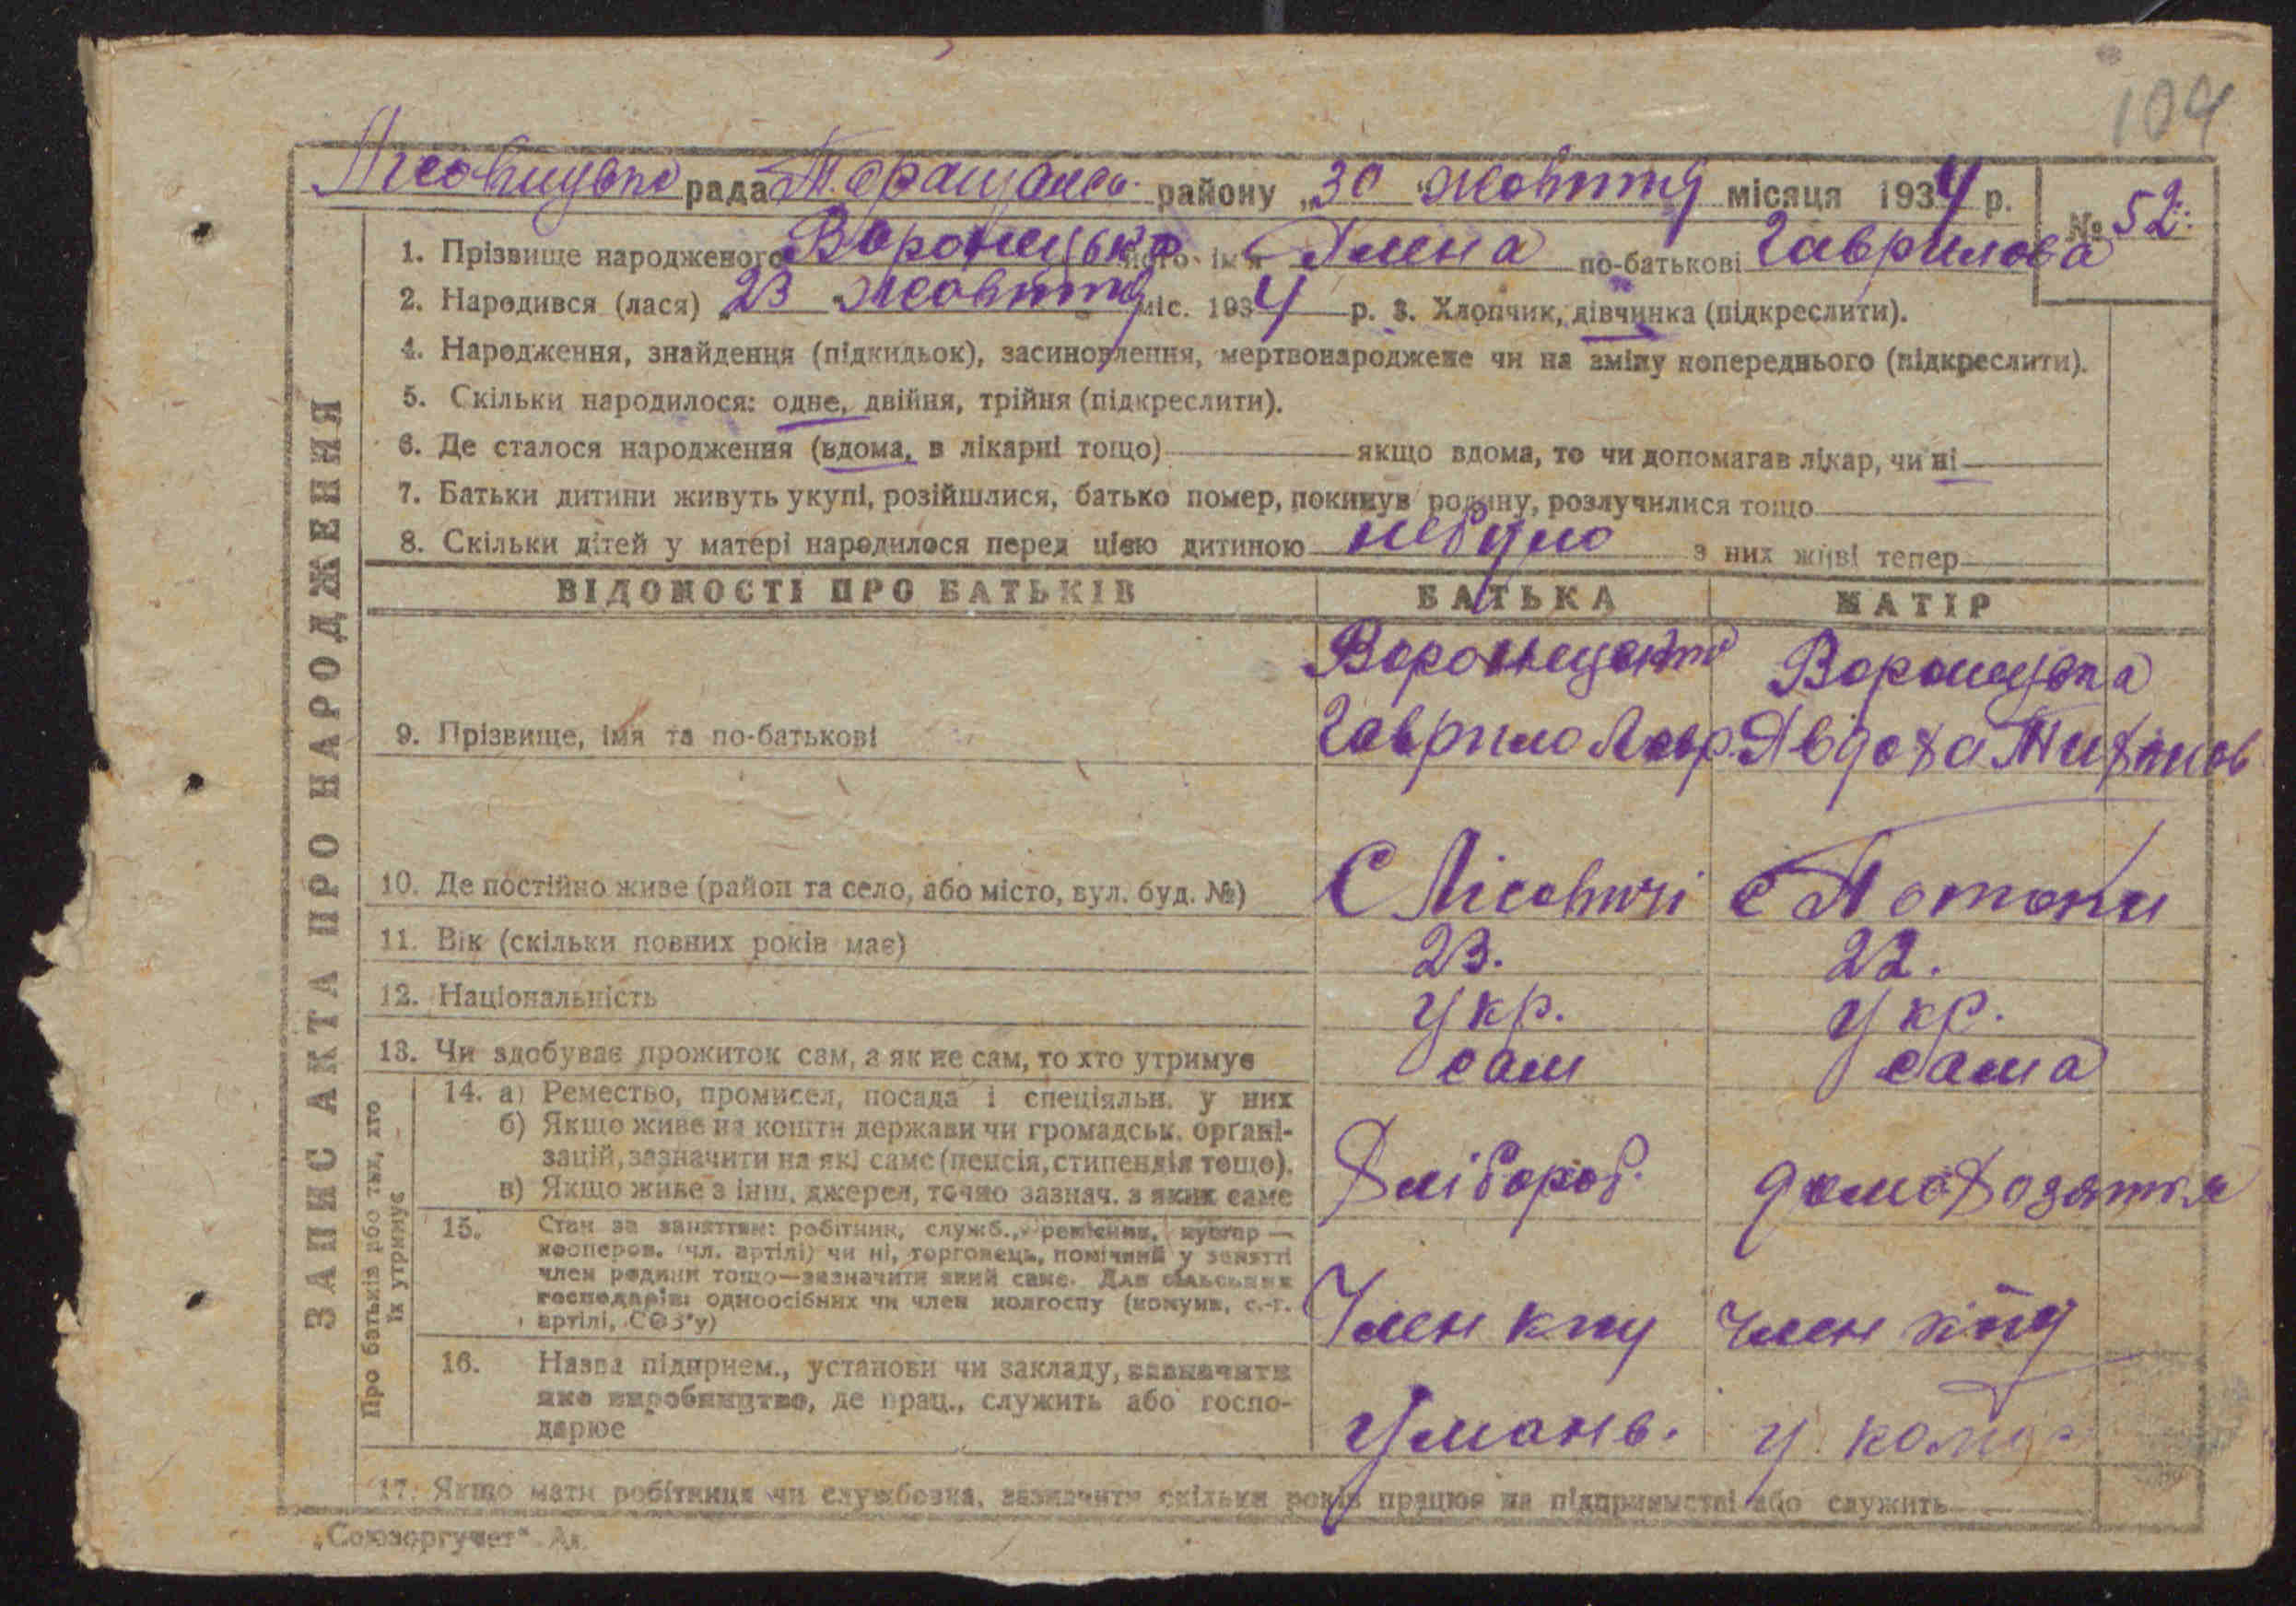 104
рада Таращансь. району „30 " жовтня місяця 1934 р. № 52.
1. Прізвище народженого Воронецька його ім'я Олена по-батькові Гаврилова
2. Народився (лася) „23 " жовтня міс. 1934 р. 3. Хлопчик, дівчинка (підкреслити).
4. Народження, знайдення (підкидьок), засиновлення, мертвонароджене чи на зміну попереднього (підкреслити).
5. Скільки народилося: одне, двійня, трійня (підкреслити).
6. Де сталося народження (вдома, в лікарні тощо) якщо вдома, то чи допомагав лікар, чи ні
7. Батьки дитини живуть укупі, розійшлися, батько помер, покинув родину, розлучилися тощо
8. Скільки дітей у матері народилося перед цією дитиною небуло з них живі тепер
ЗАПИС АКТА ПРО НАРОДЖЕННЯ
ВІДОМОСТІ ПРО БАТЬКІВ БАТЬКА МАТІР
Воронецька
9. Прізвище, імя та по-батькові Гаврило Лавр. Явдоха Тиханов
10. Де постійно живе (район та село, або місто, вул. буд. №) С Лісовичі с Потоки
11. Вік (скільки повних років має) 23. 22.
12. Національність Укр. Укр.
13. Чи здобуває прожиток сам, а як не сам, то хто утримує сам сама
Про батьків або тих, хто їх утримує
14. а) Ремество, промисел, посада і спеціяльн. у них
б) Якщо живе на кошти держави чи громадськ. органі-
зацій, зазначити на які саме (пенсія, стипендія тощо). Хлібороб. домохозяйка
в) Якщо живе з інш. джерел, точно зазнач. з яких саме
15. Стан за заняттям: робітник, служб., ремісник, кустар —
кооперов. (чл. артілі) чи ні, торговець, помічний у занятті
член родини тощо—зазначити який саме. Для сільських
господарів: одноосібних чи член колгоспу (комуни, с.-г. Член член
артілі, СОЗ'у)
16. Назва підприєм., установи чи закладу, зазначити
яке виробництво, де прац., служить або госпо- Умань. у
дарює
17. Якщо мати робітниця чи службовка, зазначити скільки років працює на підприємстві або служить
„Союзоргучет" Ал.